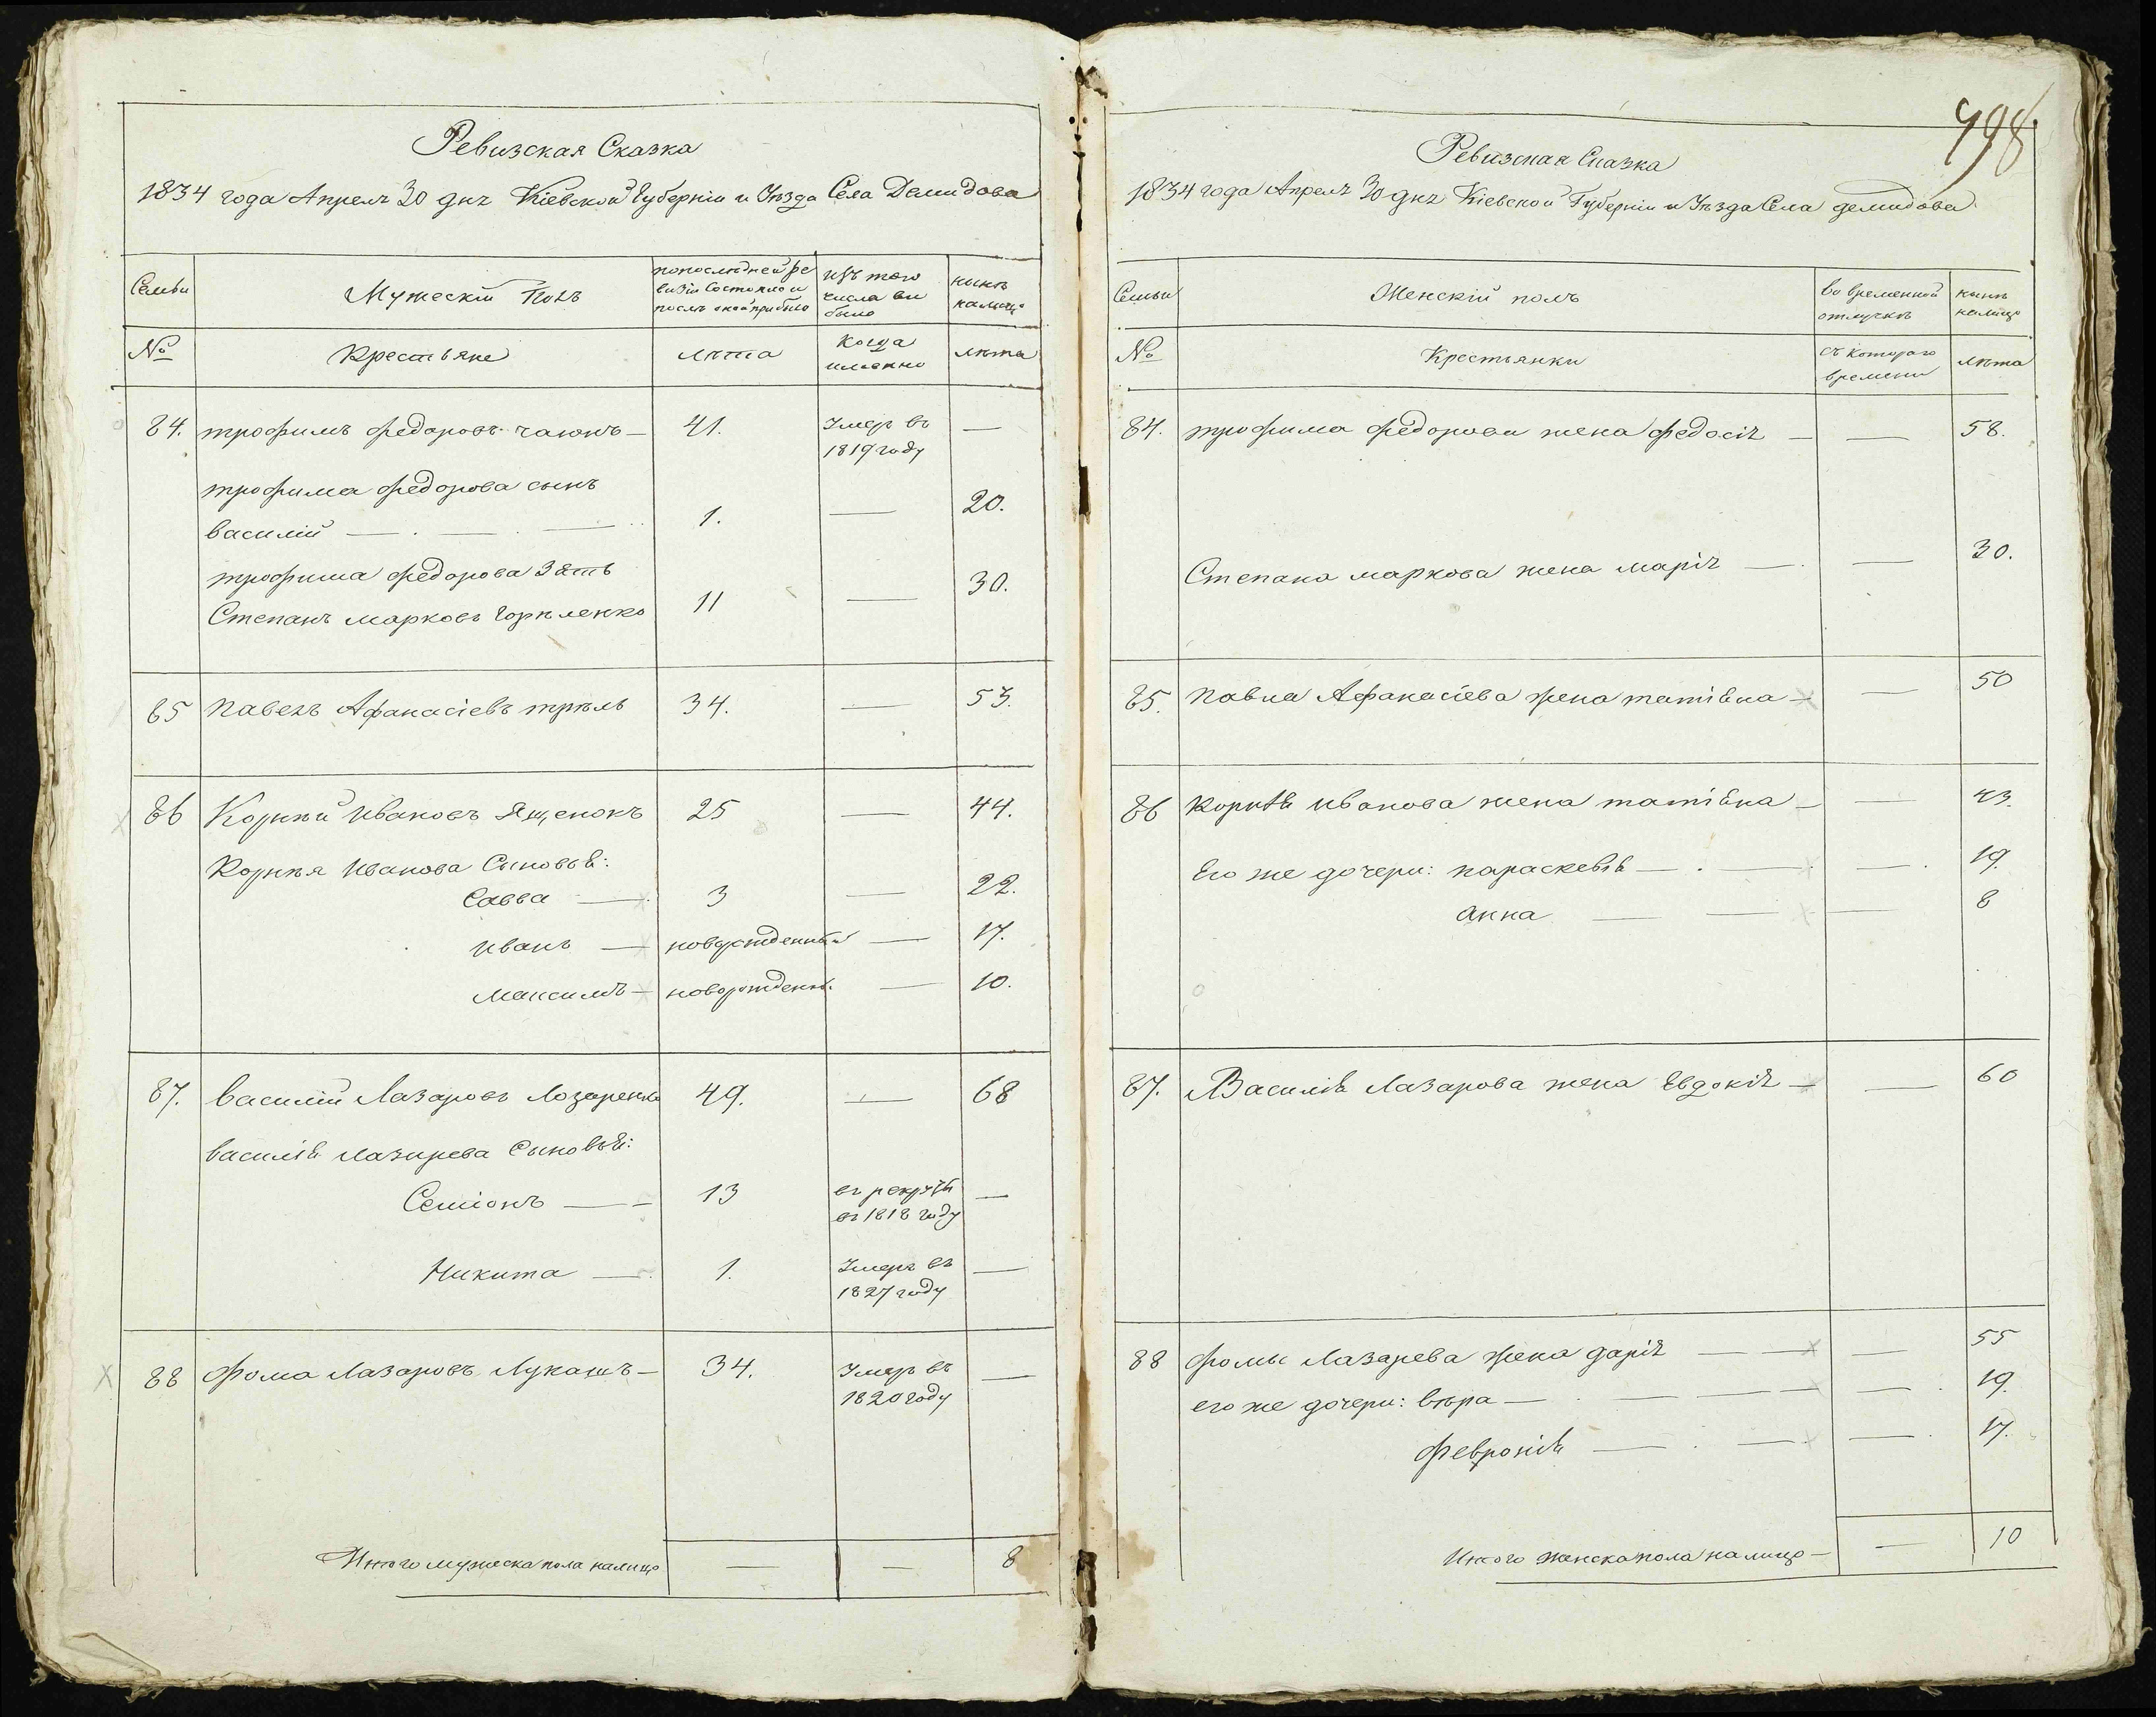 Ревизская Сказка
1834 года Апреля 30 дня Кіевской Губерніи и Уѣзда Села Демидова
Семьи
Мужескій Полъ
по последней ре
визіи Состояло и
послѣ оной прибыло
изъ того
числа вы
было
нынѣ
налицо
№
Крестьяне
лѣта
Когда
именно
лѣта
84. трофимъ федоровъ чаюкъ — 41. Умеръ въ —
1819 году
трофима федорова сынъ
василій — — — 1. — 20.
трофима федорова Зять
Степанъ марковъ Горпленко 11 — 30.
85 Павелъ Афанасіевъ трѣль 34. — 53.
86 Корнѣй Ивановъ Ященокъ 25 — 44.
Корнѣя Иванова Сыновья:
Савва — 3 — 22.
Иванъ — новорожденный — 17.
Максимъ — новорожденн. — 10.
87. Василій Лазаровъ Лозаренко 49. — 68
василія Лазарева Сыновья:
Семіонъ — 13 въ рекруты —
въ 1818 году
Никита — 1. Умеръ въ —
1827 году
88 Фома Лазаровъ Лукашъ — 34. Умеръ въ —
1820 году
Итого мужеска пола налицо — — 8
498
Ревизская Сказка
1834 года Апреля 30 дня Кіевской Губерніи и Уѣзда Села демидова
Семьи
Женскій полъ
во временной
отлучкѣ
нынѣ
налицо
№
Крестьянки
съ котораго
времени
лѣта
84. трофима федорова жена федосія — — 58.
Степана маркова жена марія — — 30.
85. Павла Афанасіева жена татіяна — — 50
86 Корнѣя Иванова жена татіяна — — 43.
Его же дочери: параскевія — — — 19.
Анна — — — 8
87. Василія Лазарова жена Евдокія — — 60
88 фомы Лазарева жена дарія — — — 55
его же дочери: вѣра — — — — 19.
февронія — — — 17.
Итого женска пола налицо — — 10